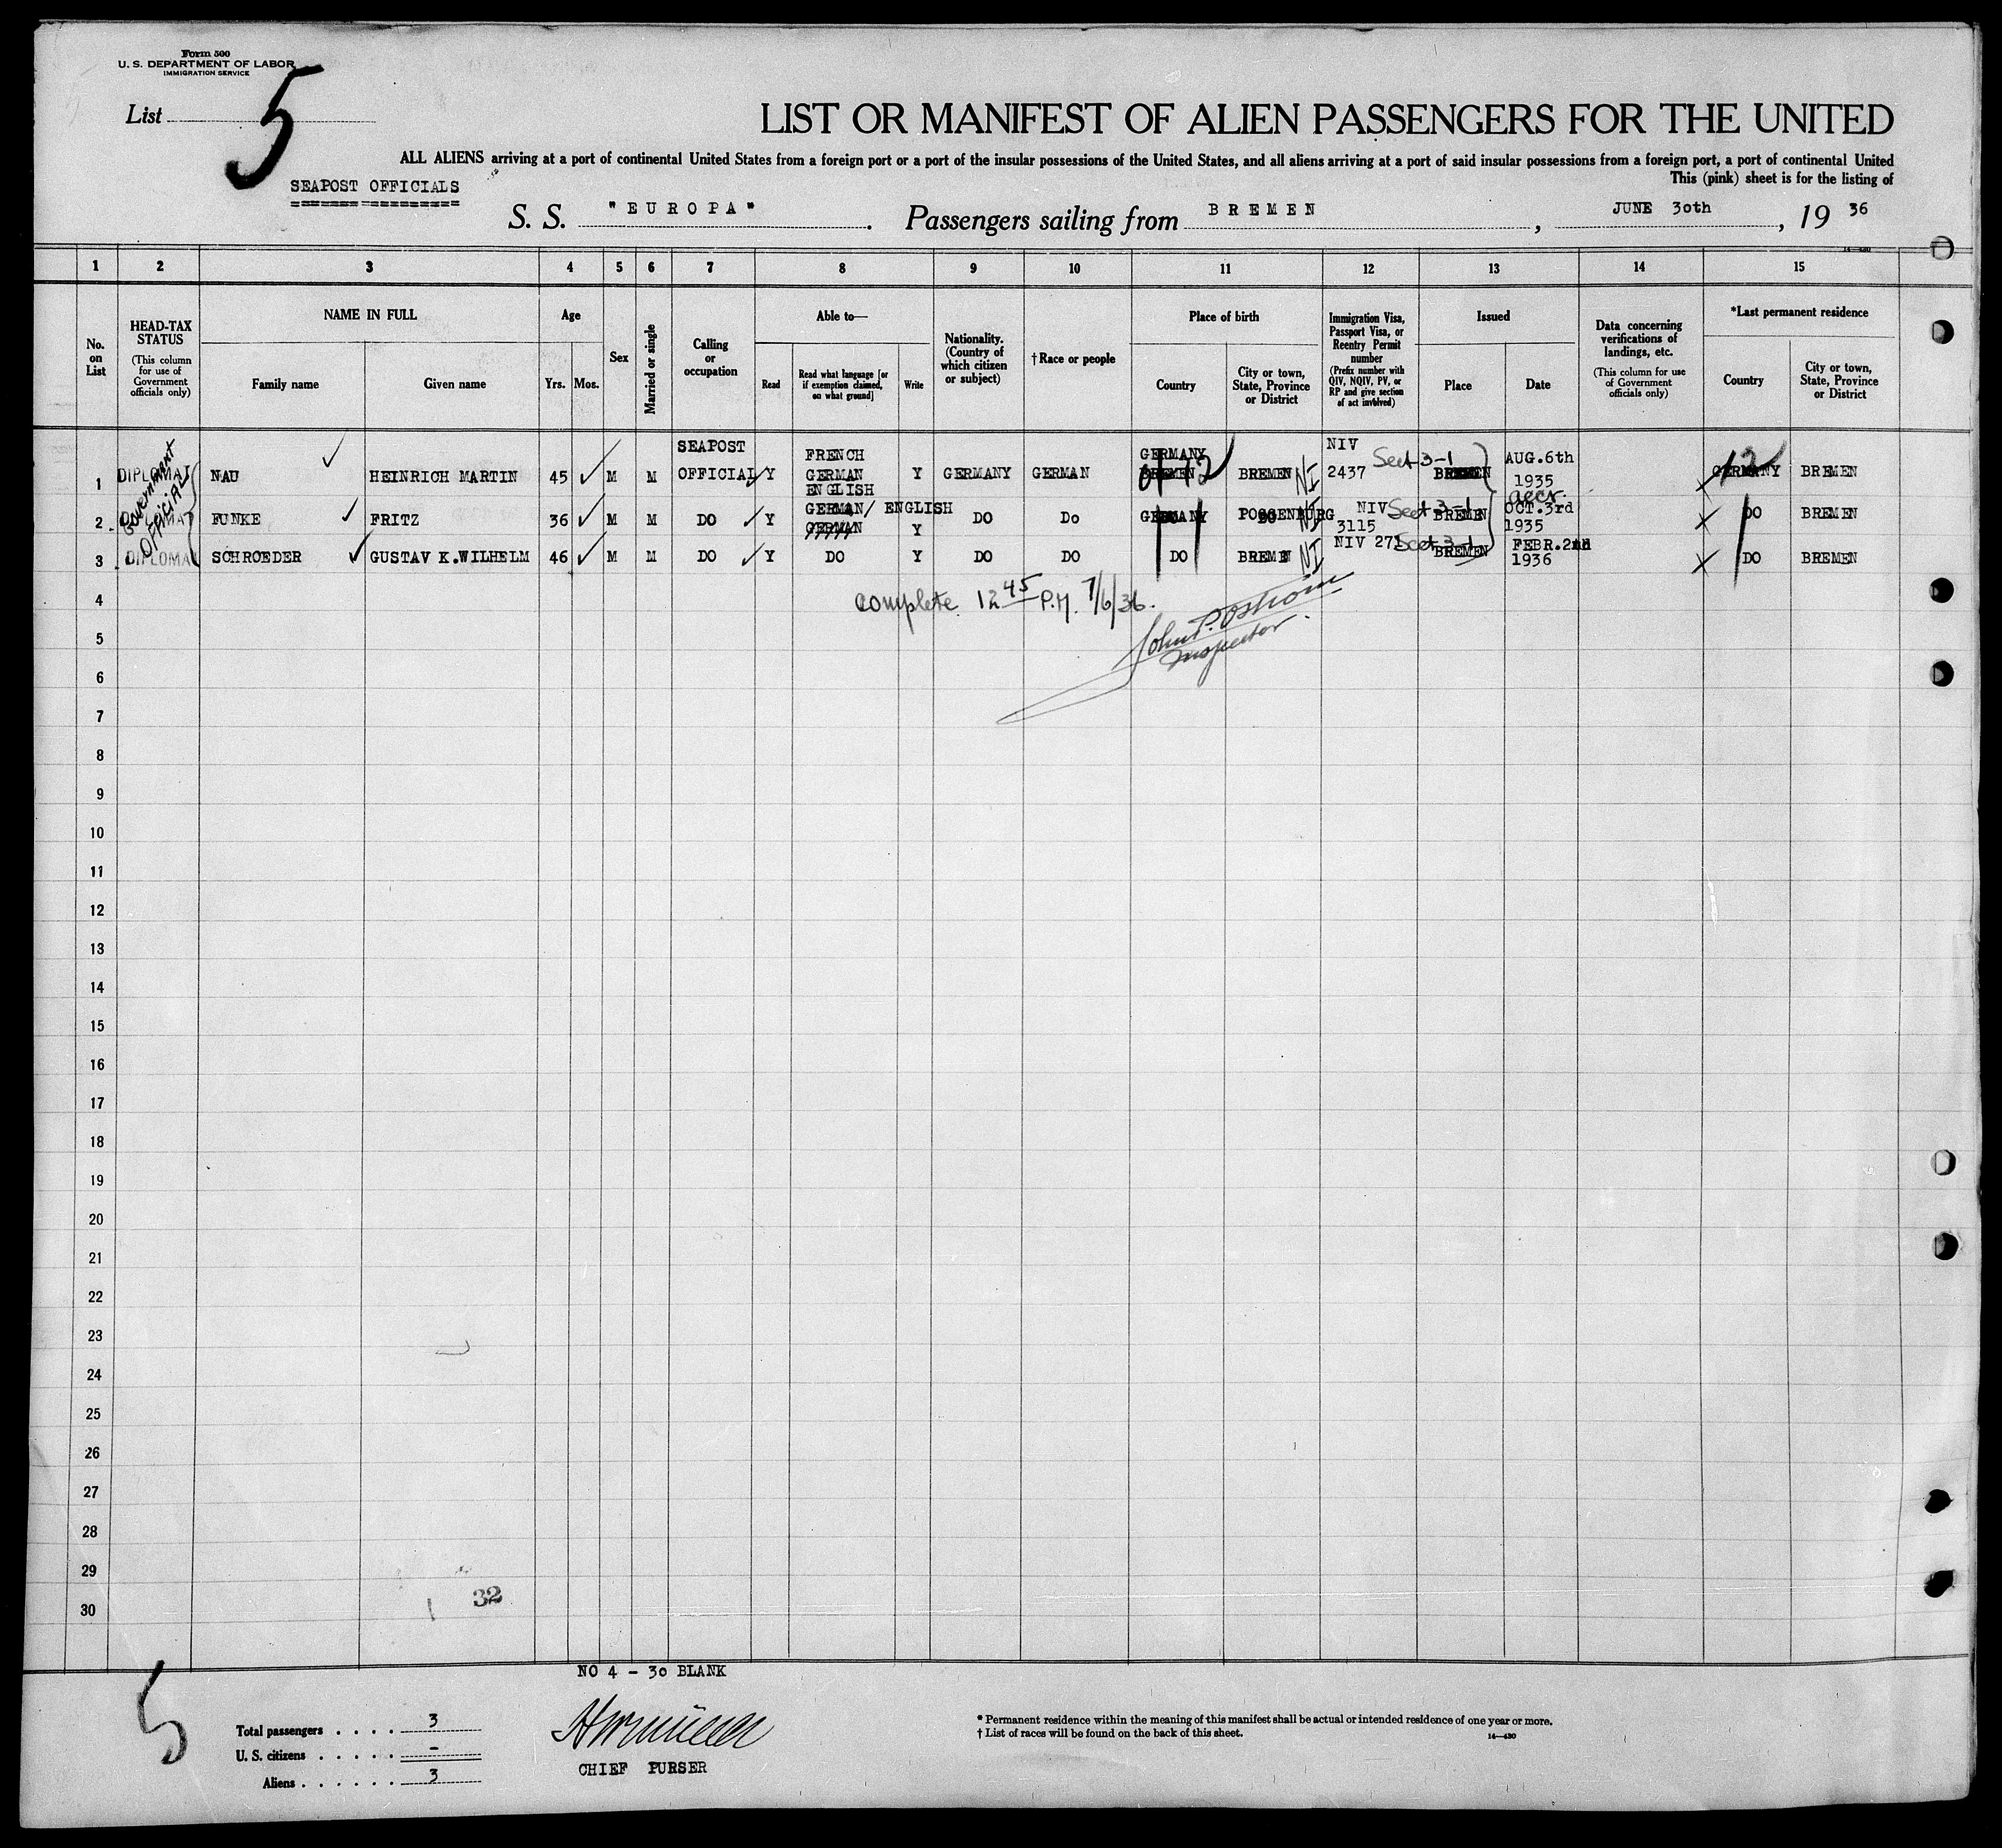 Form 500
U. S. DEPARTMENT OF LABOR
IMMIGRATION SERVICE
List 5
LIST OR MANIFEST OF ALIEN PASSENGERS FOR THE UNITED
ALL ALIENS arriving at a port of continental United States from a foreign port or a port of the insular possessions of the United States, and all aliens arriving at a port of said insular possessions from a foreign port, a port of continental United
This (pink) sheet is for the listing of
SEAPOST OFFICIALS
S. S. "EUROPA". Passengers sailing from BREMEN, JUNE 30th, 19 36
1 2 3 4 5 6 7 8 9 10 11 12 13 14 15
No. on List
HEAD-TAX STATUS
(This column for use of Government officials only)
NAME IN FULL
Family name
Given name
Age
Yrs.
Mos.
Sex
Married or single
Calling or occupation
Able to—
Read
Read what language [or if exemption claimed, on what ground]
Write
Nationality. (Country of which citizen or subject)
†Race or people
Place of birth
Country
City or town, State, Province or District
Immigration Visa, Passport Visa, or Reentry Permit number
(Prefix number with QIV, NQIV, PV, or RP and give section of act involved)
Issued
Place
Date
Data concerning verifications of landings, etc.
(This column for use of Government officials only)
*Last permanent residence
Country
City or town, State, Province or District
Government OFFICIAL
1 DIPLOMAT NAU HEINRICH MARTIN 45 M M SEAPOST OFFICIAL Y FRENCH GERMAN ENGLISH Y GERMANY GERMAN GERMANY BREMEN NI NIV 2437 Sect 3-1 BREMEN AUG.6th 1935 GERMANY BREMEN
12
2 DIPLOMAT FUNKE FRITZ 36 M M DO Y GERMAN/ ENGLISH GERMAN Y DO Do GERMANY POGGENBURG NI NIV 3115 Sect 3-1 BREMEN OCT.3rd 1935 DO BREMEN
3 DIPLOMA SCHROEDER GUSTAV K.WILHELM 46 M M DO Y DO Y DO DO DO BREMEN NI NIV 271 Sect 3-1 BREMEN FEBR.2nd 1936 DO BREMEN
4 complete 12 45 P.M. 7/6/36.
5 John P.
Inspector.
6
7
8
9
10
11
12
13
14
15
16
17
18
19
20
21
22
23
24
25
26
27
28
29
32
30
NO 4 - 30 BLANK
5
Total passengers . . . . 3
U. S. citizens . . . . . -
Aliens . . . . . . 3
CHIEF PURSER
* Permanent residence within the meaning of this manifest shall be actual or intended residence of one year or more.
† List of races will be found on the back of this sheet.
14—430